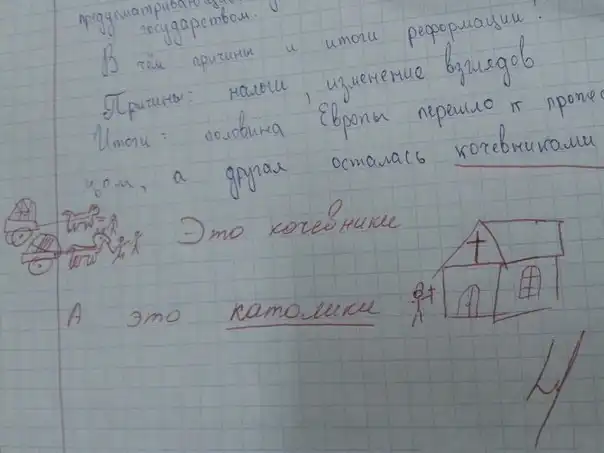 предусматриваю
государством.
В чём причины и итоги реформации?
Причины: налоги, изменение взглядов
Итоги: половина Европы перешло к протес
а другая осталась кочевниками
Это кочевники
А это католики
4